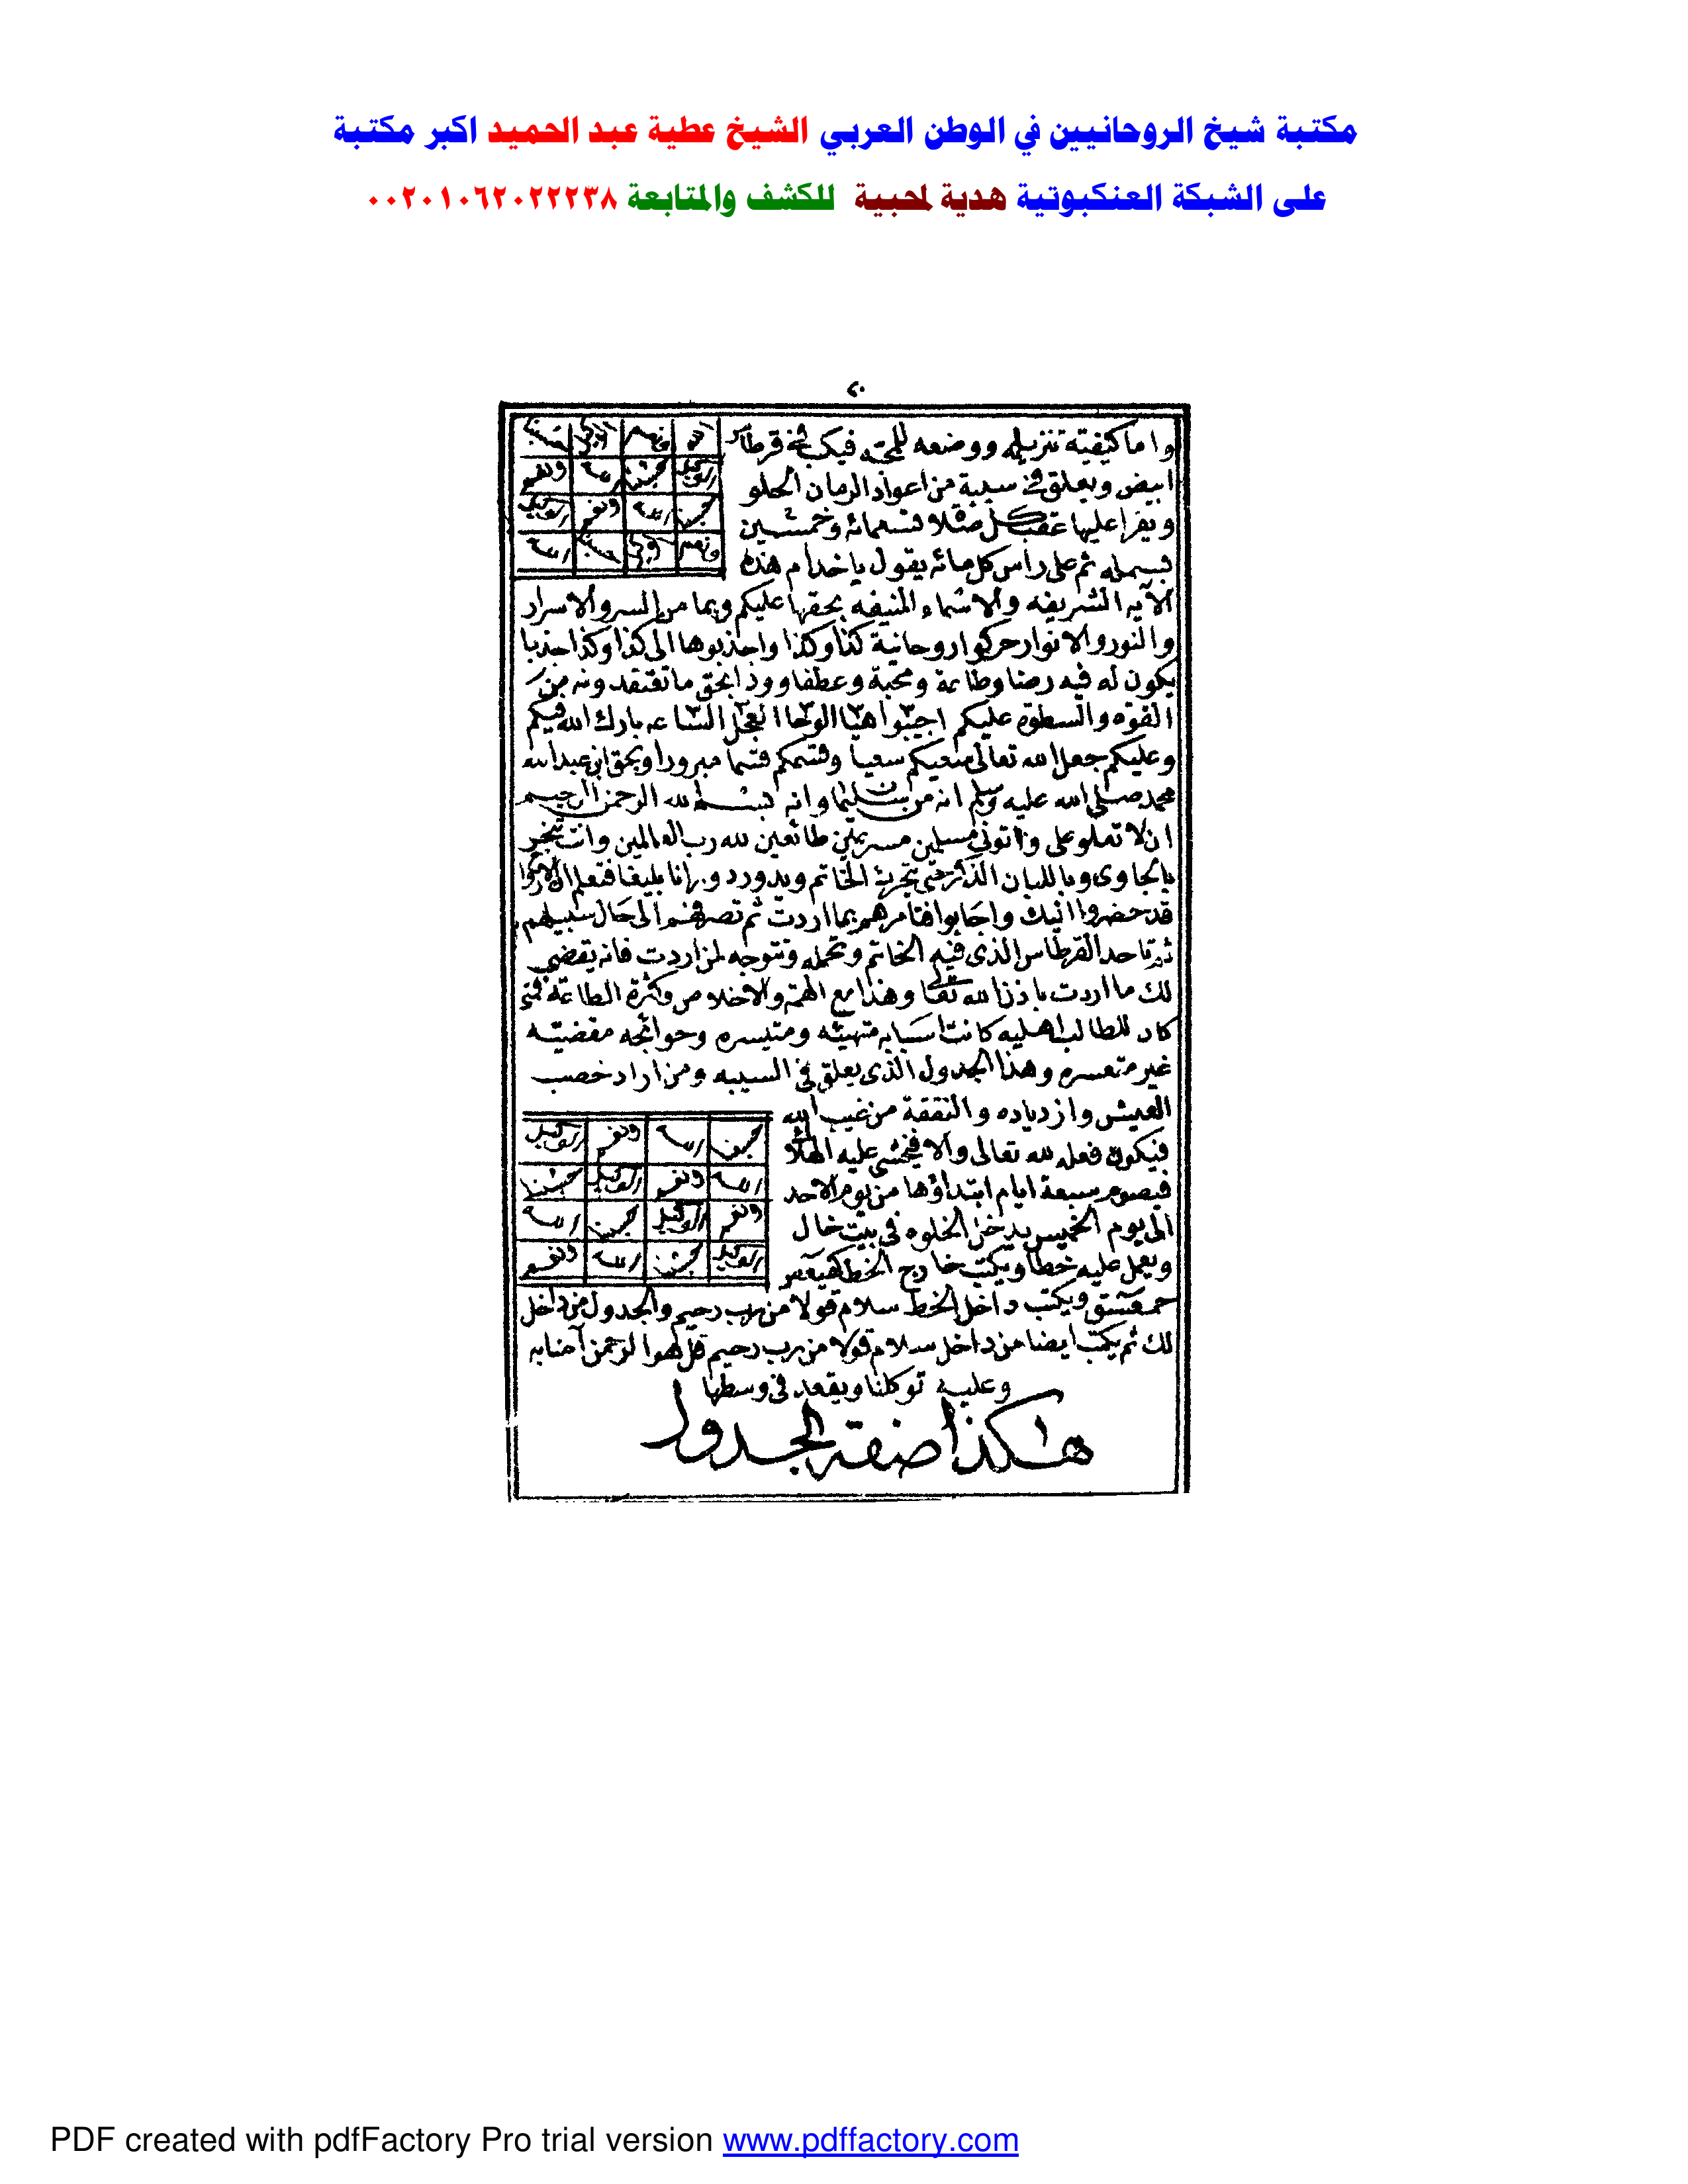 مكتبة شيخ الروحانيين في الوطن العربي الشيخ عطية عبد الحميد اكبر مكتبة
على الشبكة العنكبوتية هدية لمحبية للكشف والمتابعة ٠٠٢٠١٠٦٢٠٢٢٢٣٨
٢٠
واما كيفية تنزيله ووضعه للمحبه فيكتب في قرطاس
ابيض ويعلق في سيبة من اعواد الرمان الحلو
ويقرا عليها عقب كل صلاة تسعمائه وخمسين
بسمله ثم على راس كل مائه يقول يا خدام هذه
الآيه الشريفه والاسماء المنيفه بحقها عليكم وبما من السر والاسرار
والنور والانوار حركوا روحانية كذا وكذا واجذبوها الى كذا وكذا جذبا
يكون له فيه رضا وطاعة ومحبة وعطفا وودا بحق ما تعتقدونه من
القوه والسطوة عليكم اجيبوا هيا الوحا العجل الساعه بارك الله فيكم
وعليكم جعل الله تعالى سعيكم سعيا وقسمكم قسما مبرورا وبحق ابن عبد الله
محمد صلى الله عليه وسلم انه من سليمان وانه بسم الله الرحمن الرحيم
ان لا تعلو على واتوني مسلمين مسرعين طائعين لله رب العالمين وانت تبخر
بالجاوى وباللبان الذكر حتى الخاتم ويدور دورانا بليغا فتعلم ان
قد حضروا اليك واجابوا فتامرهم بما اردت ثم تصرفهم الى حال سبيلهم
ثم تاخد القرطاس الذى فيه الخاتم وتحمله وتتوجه لمن اردت فانه يقضى
لك ما اردت باذن الله تعالى وهذا مع الهمة والاخلاص وكثرة الطاعة فمتى
كان للطالب اهليه كانت اسبابه متهيئه ومتيسره وحوائجه مقضيه
غير متعسره وهذا الجدول الذى يعلق في السيبه ومن اراد خصب
العيش وازدياده والنفقة من غيب الله
حسبنا الله ونعم الوكيل
فيكون فعله لله تعالى والا فيخشى عليه الهلاك
الله ونعم الوكيل حسبنا
فيصوم سبعة ايام ابتداؤها من يوم الاحد
ونعم الوكيل حسبنا الله
الى يوم الخميس يدخل الخلوه في بيت خال
الوكيل حسبنا الله ونعم
ويعمل عليه خطا ويكتب خارج الخط كهيعص
حمعسق ويكتب داخل الخط سلام قولا من رب رحيم والجدول من داخل
لك ثم يكتب ايضا من داخل سلام قولا من رب رحيم قل هوا لرحمن آمنا به
وعليه توكلنا ويقعد في وسطها
هاكذا صفة الجدول
PDF created with pdfFactory Pro trial version www.pdffactory.com